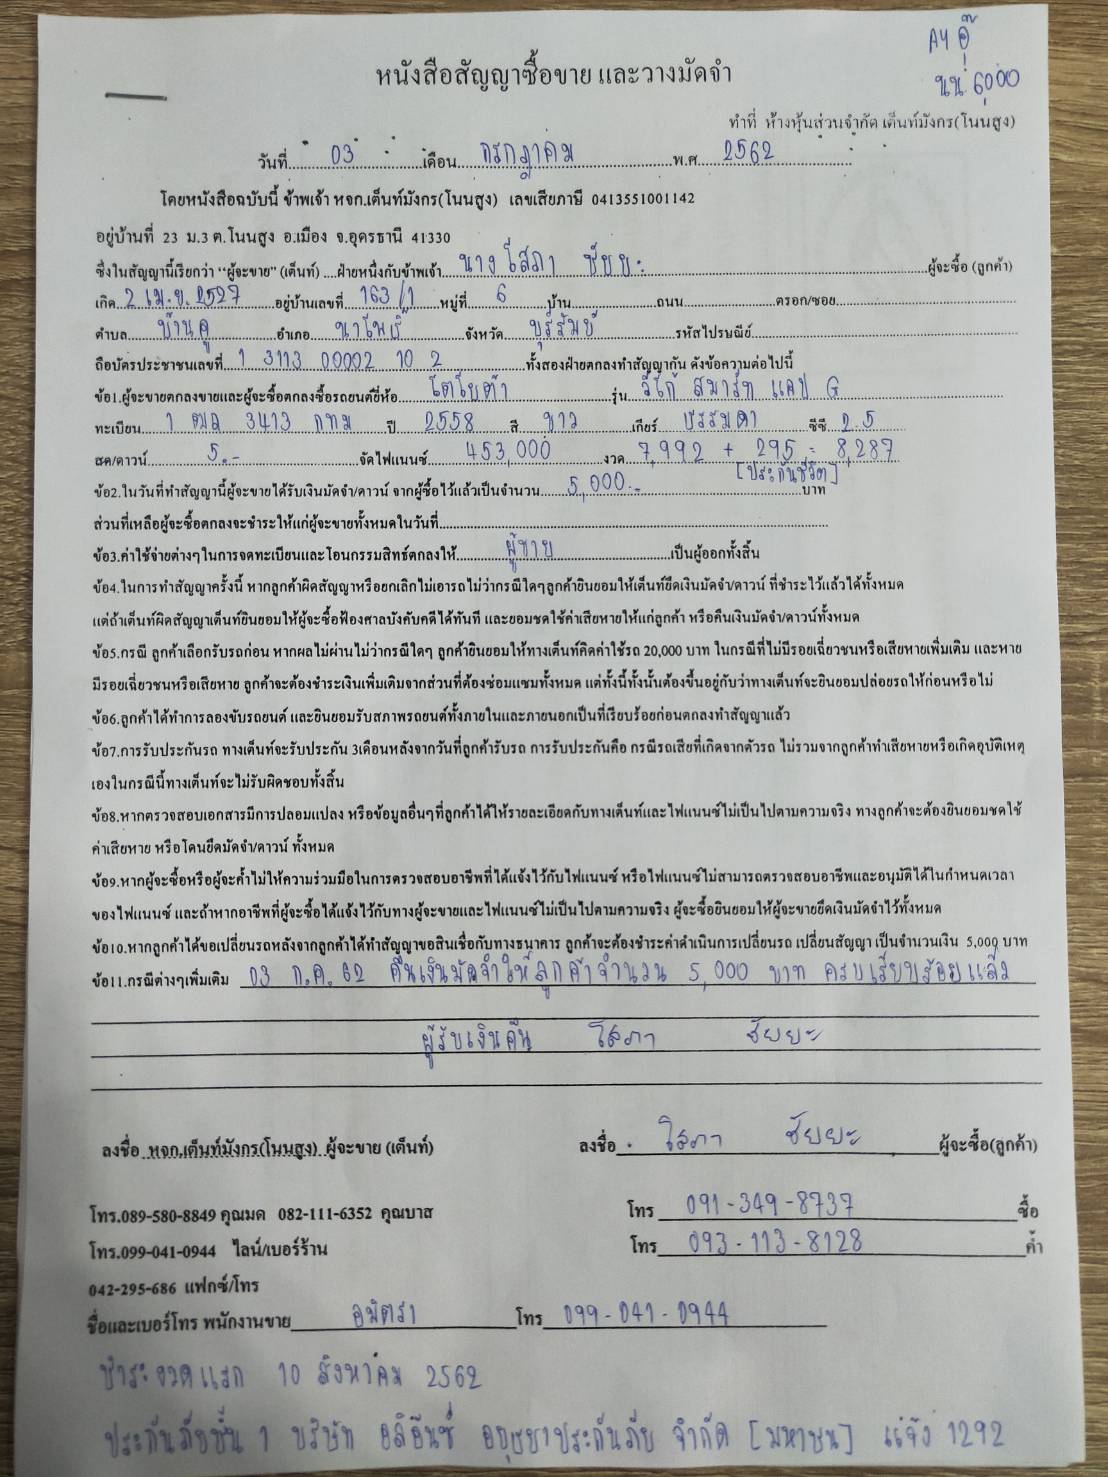 A4 อุ๊
นน. 6,000
หนังสือสัญญาซื้อขาย และวางมัดจำ
ทำที่ ห้างหุ้นส่วนจำกัด เต็นท์มังกร(โนนสูง)
วันที่ 03 เดือน กรกฎาคม พ.ศ. 2562
โดยหนังสือฉบับนี้ ข้าพเจ้า หจก.เต็นท์มังกร(โนนสูง) เลขเสียภาษี 0413551001142
อยู่บ้านที่ 23 ม.3 ต.โนนสูง อ.เมือง จ.อุดรธานี 41330
ซึ่งในสัญญานี้เรียกว่า "ผู้จะขาย" (เต็นท์) ....ฝ่ายหนึ่งกับข้าพเจ้า นางโสภา ชัยยะ ผู้จะซื้อ (ลูกค้า)
เกิด 2 เม.ย. 2527 อยู่บ้านเลขที่ 163/1 หมู่ที่ 6 บ้าน ถนน ตรอก/ซอย
ตำบล บ้านคู อำเภอ นาโพธิ์ จังหวัด บุรีรัมย์ รหัสไปรษณีย์
ถือบัตรประชาชนเลขที่ 1 3113 00002 10 2 ทั้งสองฝ่ายตกลงทำสัญญากัน ดังข้อความต่อไปนี้
ข้อ1.ผู้จะขายตกลงขายและผู้จะซื้อตกลงซื้อรถยนต์ยี่ห้อ โตโยต้า รุ่น วีโก้ สมาร์ท แคป G
ทะเบียน 1 ฒฌ 3413 กทม ปี 2558 สี ขาว เกียร์ ธรรมดา ซีซี 2.5
สด/ดาวน์ 5.- จัดไฟแนนซ์ 453,000 งวด 7,992 + 295 = 8,287
[ประกันชีวิต]
ข้อ2.ในวันที่ทำสัญญานี้ผู้จะขายได้รับเงินมัดจำ/ดาวน์ จากผู้ซื้อไว้แล้วเป็นจำนวน 5,000.- บาท
ส่วนที่เหลือผู้จะซื้อตกลงจะชำระให้แก่ผู้จะขายทั้งหมดในวันที่
ข้อ3.ค่าใช้จ่ายต่างๆในการจดทะเบียนและโอนกรรมสิทธ์ตกลงให้ ผู้ขาย เป็นผู้ออกทั้งสิ้น
ข้อ4.ในการทำสัญญาครั้งนี้ หากลูกค้าผิดสัญญาหรือยกเลิกไม่เอารถไม่ว่ากรณีใดๆลูกค้ายินยอมให้เต็นท์ยึดเงินมัดจำ/ดาวน์ ที่ชำระไว้แล้วได้ทั้งหมด
แต่ถ้าเต็นท์ผิดสัญญาเต็นท์ยินยอมให้ผู้จะซื้อฟ้องศาลบังคับคดีได้ทันที และยอมชดใช้ค่าเสียหายให้แก่ลูกค้า หรือคืนเงินมัดจำ/ดาวน์ทั้งหมด
ข้อ5.กรณี ลูกค้าเลือกรับรถก่อน หากผลไม่ผ่านไม่ว่ากรณีใดๆ ลูกค้ายินยอมให้ทางเต็นท์คิดค่าใช้รถ 20,000 บาท ในกรณีที่ไม่มีรอยเฉี่ยวชนหรือเสียหายเพิ่มเติม และหาย
มีรอยเฉี่ยวชนหรือเสียหาย ลูกค้าจะต้องชำระเงินเพิ่มเติมจากส่วนที่ต้องซ่อมแซมทั้งหมด แต่ทั้งนี้ทั้งนั้นต้องขึ้นอยู่กับว่าทางเต็นท์จะยินยอมปล่อยรถให้ก่อนหรือไม่
ข้อ6.ลูกค้าได้ทำการลองขับรถยนต์ และยินยอมรับสภาพรถยนต์ทั้งภายในและภายนอกเป็นที่เรียบร้อยก่อนตกลงทำสัญญาแล้ว
ข้อ7.การรับประกันรถ ทางเต็นท์จะรับประกัน 3เดือนหลังจากวันที่ลูกค้ารับรถ การรับประกันคือ กรณีรถเสียที่เกิดจากตัวรถ ไม่รวมจากลูกค้าทำเสียหายหรือเกิดอุบัติเหตุ
เองในกรณีนี้ทางเต็นท์จะไม่รับผิดชอบทั้งสิ้น
ข้อ8.หากตรวจสอบเอกสารมีการปลอมแปลง หรือข้อมูลอื่นๆที่ลูกค้าได้ให้รายละเอียดกับทางเต็นท์และไฟแนนซ์ไม่เป็นไปตามความจริง ทางลูกค้าจะต้องยินยอมชดใช้
ค่าเสียหาย หรือโดนยึดมัดจำ/ดาวน์ ทั้งหมด
ข้อ9.หากผู้จะซื้อหรือผู้จะค้ำไม่ให้ความร่วมมือในการตรวจสอบอาชีพที่ได้แจ้งไว้กับไฟแนนซ์ หรือไฟแนนซ์ไม่สามารถตรวจสอบอาชีพและอนุมัติได้ในกำหนดเวลา
ของไฟแนนซ์ และถ้าหากอาชีพที่ผู้จะซื้อได้แจ้งไว้กับทางผู้จะขายและไฟแนนซ์ไม่เป็นไปตามความจริง ผู้จะซื้อยินยอมให้ผู้จะขายยึดเงินมัดจำไว้ทั้งหมด
ข้อ10.หากลูกค้าได้ขอเปลี่ยนรถหลังจากลูกค้าได้ทำสัญญาขอสินเชื่อกับทางธนาคาร ลูกค้าจะต้องชำระค่าดำเนินการเปลี่ยนรถ เปลี่ยนสัญญา เป็นจำนวนเงิน 5,000 บาท
ข้อ11.กรณีต่างๆเพิ่มเติม 03 ก.ค. 62 คืนเงินมัดจำให้ลูกค้าจำนวน 5,000 บาท ครบเรียบร้อยแล้ว
ผู้รับเงินคืน โสภา ชัยยะ
ลงชื่อ หจก.เต็นท์มังกร(โนนสูง) ผู้จะขาย (เต็นท์) ลงชื่อ โสภา ชัยยะ ผู้จะซื้อ(ลูกค้า)
โทร.089-580-8849 คุณมด 082-111-6352 คุณบาส โทร 091-349-8737 ซื้อ
โทร.099-041-0944 ไลน์/เบอร์ร้าน โทร 093-113-8128 ค้ำ
042-295-686 แฟกซ์/โทร
ชื่อและเบอร์โทร พนักงานขาย อมิตรา โทร 099-041-0944
ชำระงวดแรก 10 สิงหาคม 2562
ประกันภัยชั้น 1 บริษัท อลิอันซ์ อยุธยาประกันภัย จำกัด [มหาชน] แจ้ง 1292